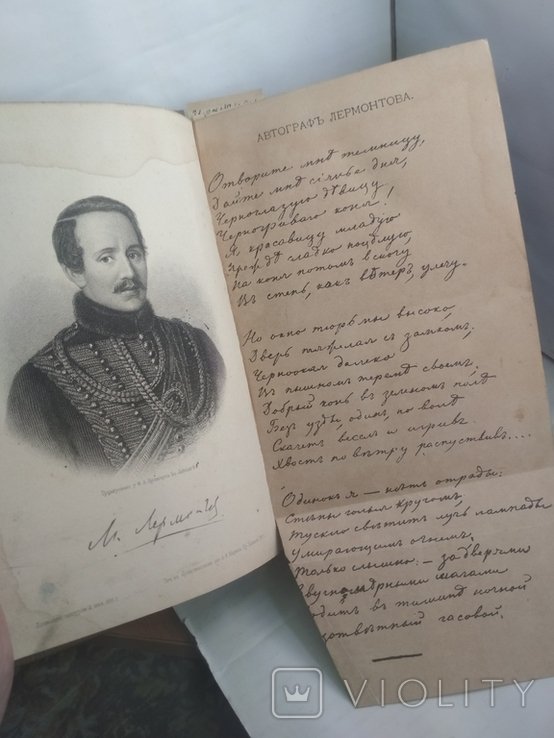 М. Лермонтов
АВТОГРАФЪ ЛЕРМОНТОВА.
Отворите мнѣ темницу,
Дайте мнѣ сіянье дня,
Черноглазую дѣвицу
Черногриваго коня!
Я красавицу младую
Прежде сладко поцѣлую,
На коня потомъ вскочу,
Въ степь, какъ вѣтеръ, улечу.
Но окно тюрьмы высоко,
Дверь тяжелая съ замкомъ.
Черноокая далеко
Въ пышномъ теремѣ своемъ.
Добрый конь въ зеленомъ полѣ
Безъ узды, одинъ, по волѣ
Скачетъ веселъ и игривъ
Хвостъ по вѣтру распустивъ....
Одинокъ я — нѣтъ отрады:
Стѣны голыя кругомъ,
Тускло свѣтитъ лучъ лампады
Умирающимъ огнемъ.
Только слышно: — за дверями
звучномѣрными шагами
ходитъ въ тишинѣ ночной
безотвѣтный часовой.
VIOLITY